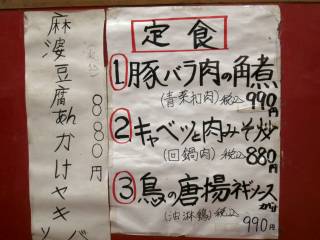 定食
①豚バラ肉の角煮
(青菜扣肉)税込990円
②キャベツと肉みそ炒
(回鍋肉)税込880円
③鳥の唐揚ネギソースがけ
(油淋鶏)税込990円
麻婆豆腐あんかけヤキソバ
880円